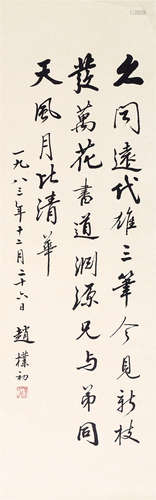 久闻遠代雄三筆今見新枝
發萬花書道淵源兄与弟同
天風月比清華
一九八三年十二月二十六日
趙樸初